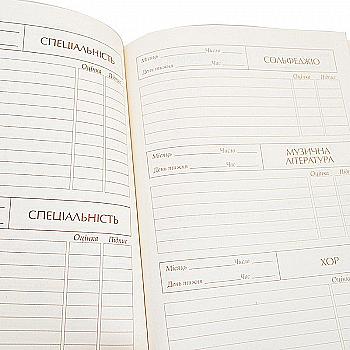 СПЕЦІАЛЬНІСТЬ
Оцінка Підпис
СПЕЦІАЛЬНІСТЬ
Оцінка Підпис
Місяць Число
День тижня Час
СОЛЬФЕДЖІО
Оцінка Підпис
Місяць Число
День тижня Час
МУЗИЧНА
ЛІТЕРАТУРА
Оцінка Підпис
Місяць Число
День тижня Час
ХОР
Оцінка Підпис